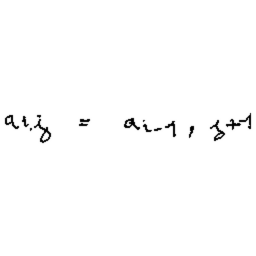 a_{i,j} = a_{i-1, j+1}